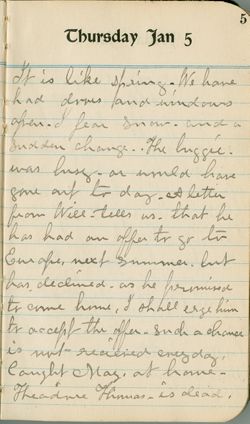 5
Thursday Jan 5
It is like spring. We have
had doors and windows
open. I fear snow. and a
sudden change. The buggie.
was busy. or would have
gone out to day. A letter
from Will. tells us. that he
has had an offer to go to
Europe, next summer. but
has declined. as he promised
to come home. I shall urge him
to accept the offer. Such a chance
is not received everyday.
Caught May, at home.
Theodore Thomas. is dead.